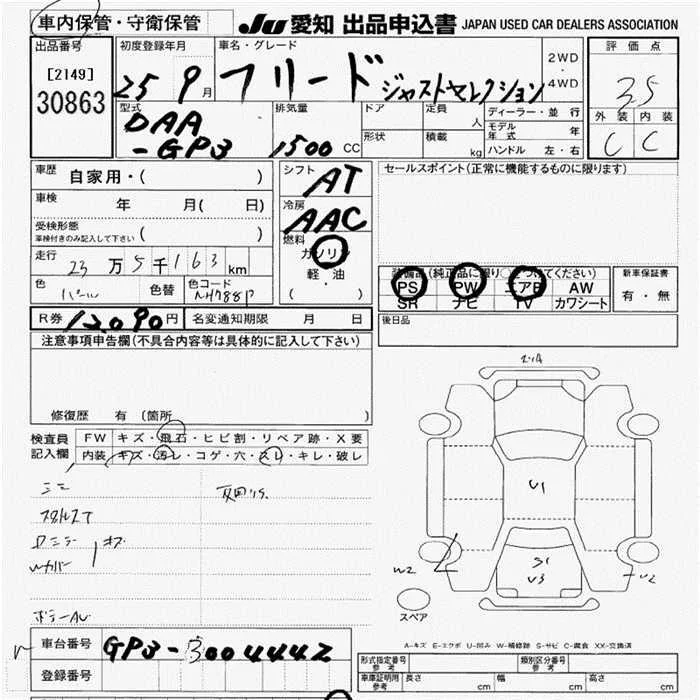 車内保管・守衛保管
JU 愛知 出品申込書 JAPAN USED CAR DEALERS ASSOCIATION
出品番号
[2149]
30863
初度登録年月
25 9月
車名・グレード
フリード ジャストセレクション
2WD
・
4WD
評価点
3.5
外装 内装
C C
型式
DAA
-GP3
排気量
1500 CC
ドア
形状
定員 人
積載 kg
ディーラー・並行
モデル年式 年
ハンドル 左・右
車歴 自家用・( )
車検 年 月( 日)
受検形態
車検付きのみ記入して下さい ( )
走行 23万5千163km
色 パール 色替 色コード NH788P
シフト AT
冷房 AAC
燃料
ガソリン
軽・油
( )
セールスポイント(正常に機能するものに限ります)
装備品(純正品に限り○をつけてください)
PS PW エアB AW
SR ナビ TV カワシート
新車保証書
有・無
R券 12,090円 名変通知期限 月 日
後日品
注意事項申告欄(不具合内容等は具体的に記入して下さい)
修復歴 有 (箇所
検査員
記入欄
FW キズ・飛石・ヒビ割・リペア跡・X要
内装 キズ・汚レ・コゲ・穴・スレ・キレ・破レ
U1
S1
U3
W2
スペア
A-キズ E-エクボ U-凹み W-補修跡 S-サビ C-腐食 XX-交換済
車台番号 GP3-3004442
登録番号
形式指定番号
参考
類別区分番号
参考
車庫証明用
参考
長さ cm 幅 cm 高さ cm